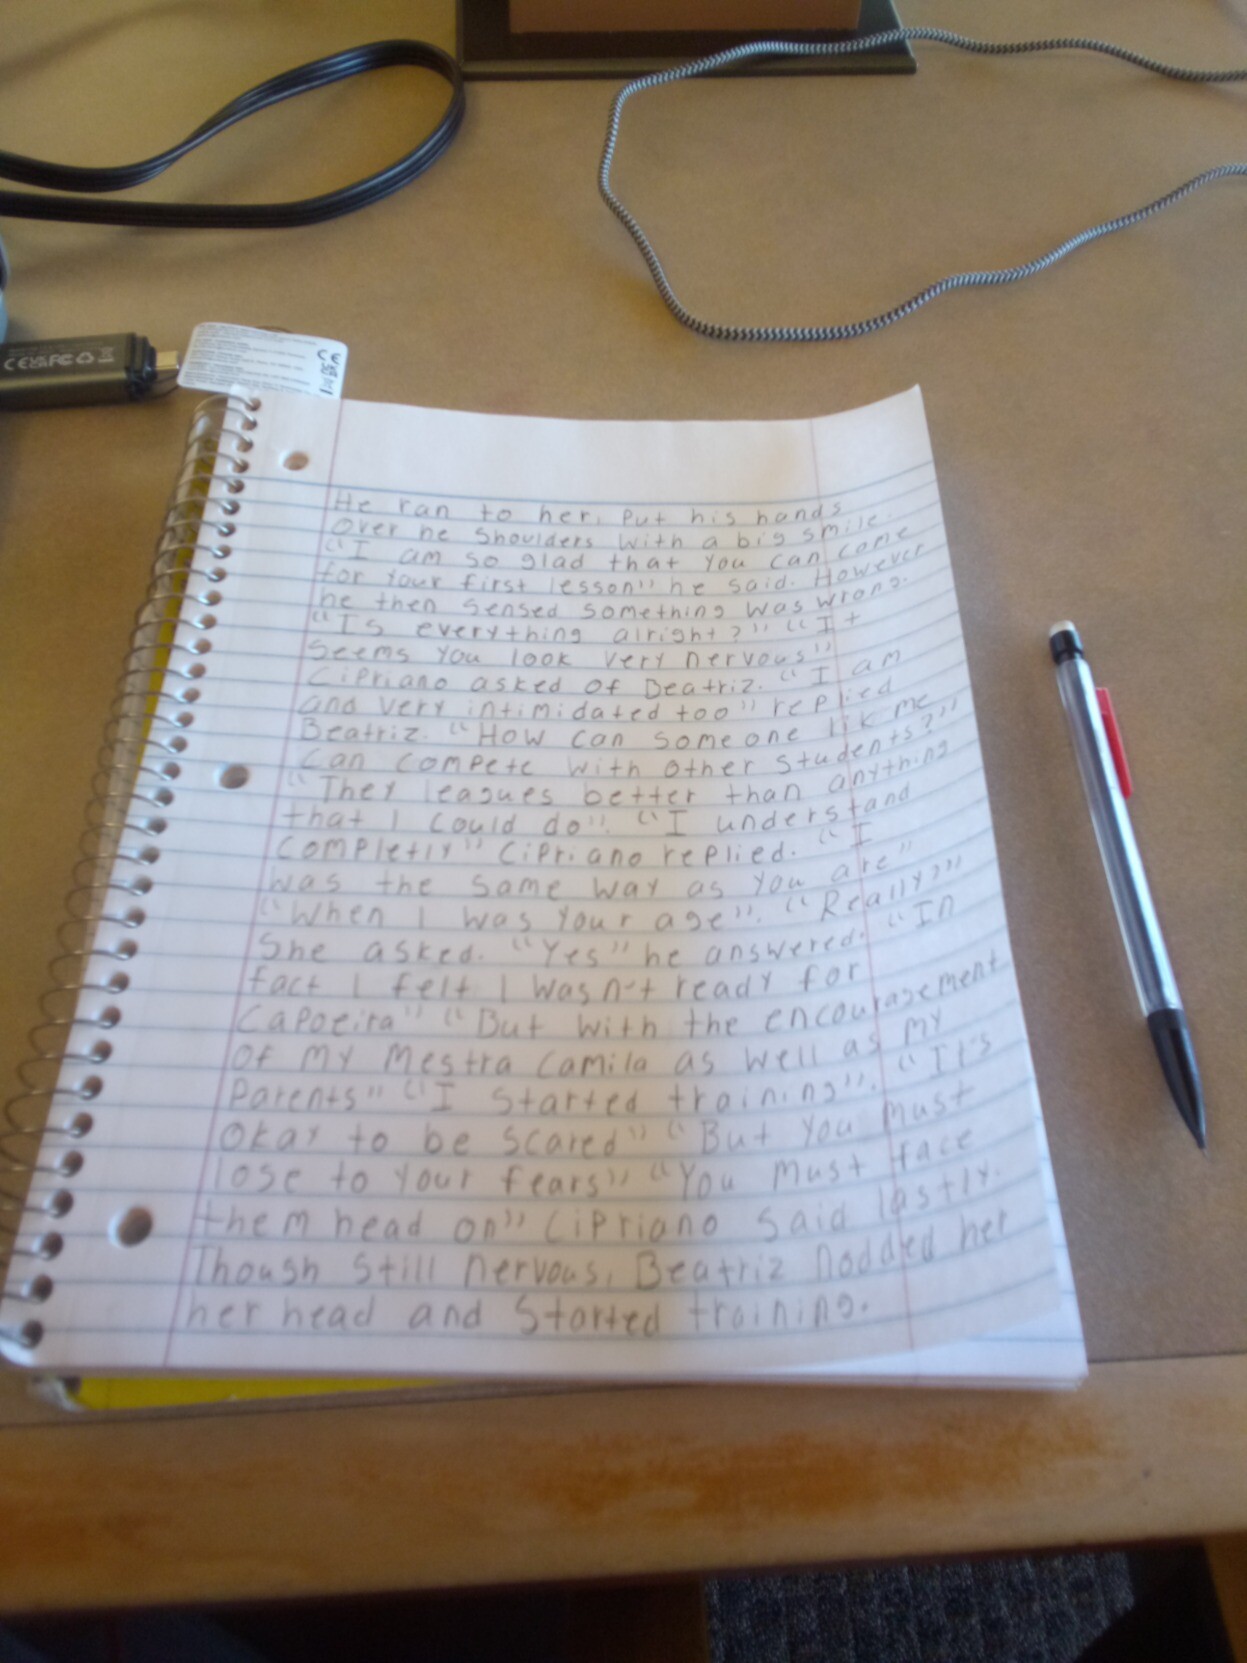 CE UK CA FC
CE
He ran to her, Put his hands
over he shoulders with a big smile.
"I am so glad that you can come
for your first lesson" he said. However
he then sensed something was wrong.
"Is everything alright?" "It
seems you look very nervous"
Cipriano asked of Beatriz. "I am
and very intimidated too" replied
Beatriz. "How can someone lik me
can compete with other students?"
"They leagues better than anything
that I could do". "I understand
Completly" Cipriano replied. "I
was the same way as you are"
"When I was your age". "Really?"
She asked. "Yes" he answered. "In
fact I felt I wasn't ready for
Capoeira" "But with the encouragement
of my Mestra Camila as well as my
Parents" "I started training". "It's
Okay to be scared" "But you must
lose to your fears" "You must face
them head on" Cipriano said lastly.
Though still nervous, Beatriz nodded her
her head and started training.